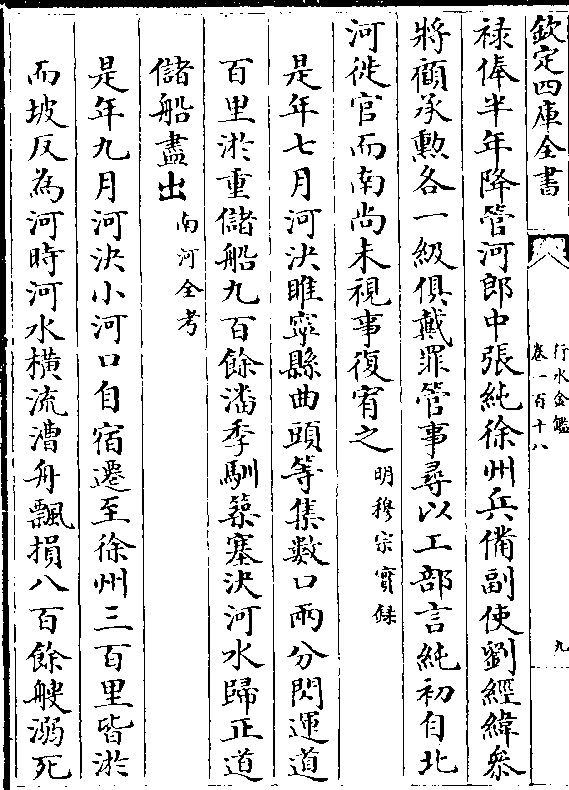 欽定四庫全書
行水金鑑
卷一百十八
九
祿俸半年降管河郎中張純徐州兵備副使劉經緯叅
將顧承勲各一級俱戴罪管事尋以工部言純初自北
河徙官而南尚未視事復宥之明穆宗實録
是年七月河決睢寧縣曲頭等集數口兩分閃運道
百里淤重儲船九百餘潘季馴築塞決河水歸正道
儲船盡出南河全考
是年九月河決小河口自宿遷至徐州三百里皆淤
而坡反為河時河水橫流漕舟飄損八百餘艘溺死